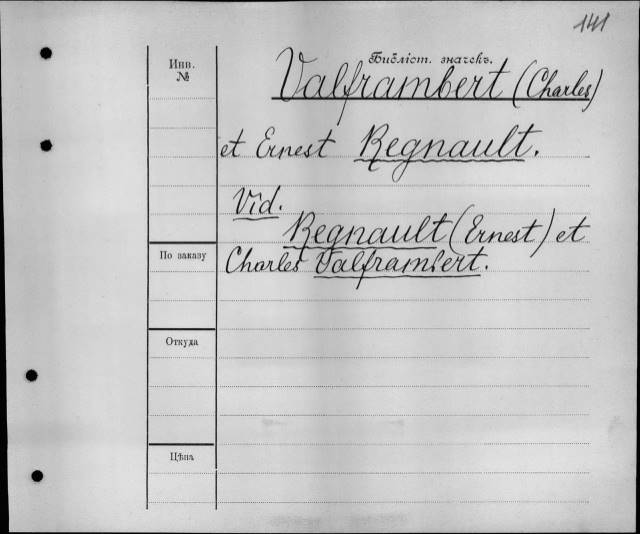 141
Инв.
№
Библіот. значекъ.
Valframbert (Charles)
et Ernest Regnault.
Vid.
Regnault (Ernest) et
По заказу
Charles Valframbert.
Откуда
Цѣна